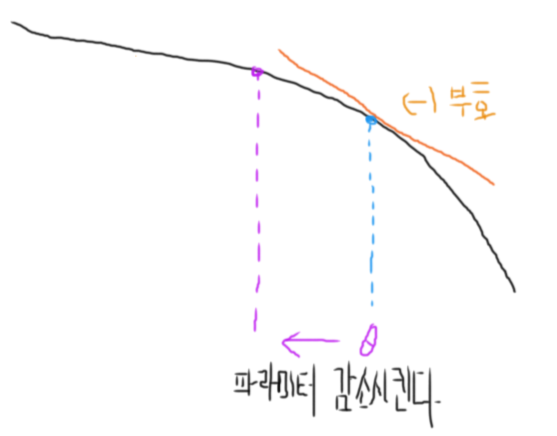 (-) 부호
θ
파라미터 감소시킨다.